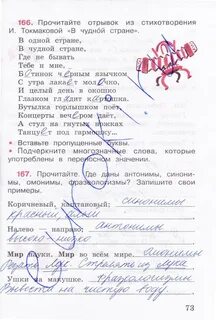 166. Прочитайте отрывок из стихотворения
И. Токмаковой «В чудной стране».
В одной стране,
В чудной стране,
Где не бывать
Тебе и мне,
Ботинок чёрным язычком
С утра лакает молочко,
И целый день в окошко
Глазком глядит картошка.
Бутылка горлышком поёт,
Концерты вечером даёт,
А стул на гнутых ножках
Танцует под гармошку...
• Вставьте пропущенные буквы.
• Подчеркните многозначные слова, которые
употреблены в переносном значении.
167. Прочитайте. Где даны антонимы, синони-
мы, омонимы, фразеологизмы? Запишите свои
примеры.
Коричневый, каштановый; синонимы
красный, алый
Налево – направо; антонимы
высоко – низко
Мир Мир во всём мире. Омонимы
лук Стрелять из лука
Ушки на макушке. Фразеологизм
Вывести на чистую воду
73